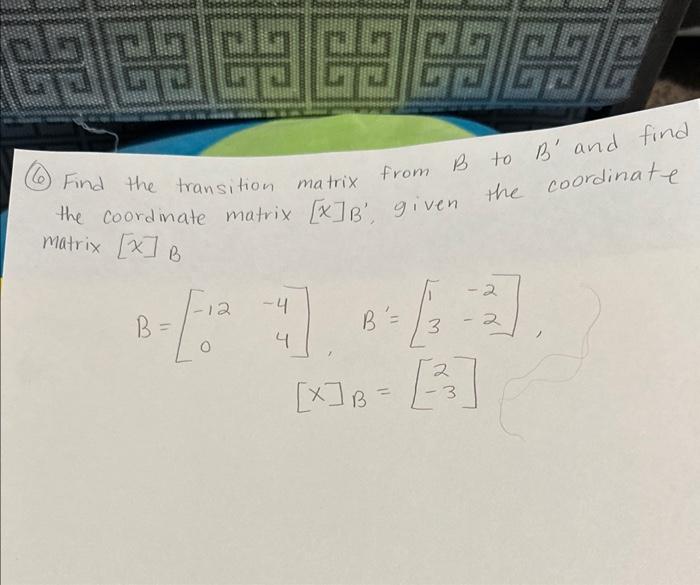 ⑥ Find the transition matrix from B to B' and find
the coordinate matrix [x]B', given the coordinate
matrix [x] B
B = [-12 -4
0 4], B' = [1 -2
3 -2],
[x]B = [2
-3]